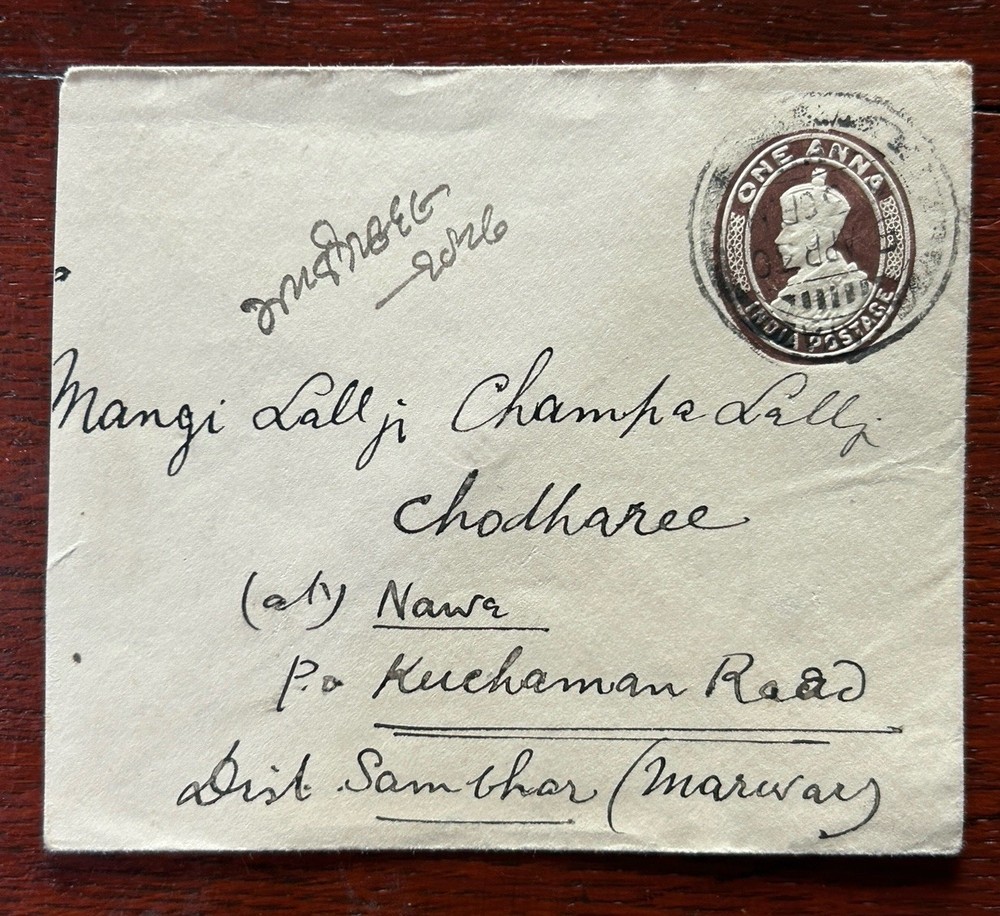 ONE ANNA
INDIA POSTAGE
APR 30
Mangi Lallji Champa Lallji
Chodharee
(at) Nawa
P.o Kuchaman Road
Dist Sambhar (Marwar)